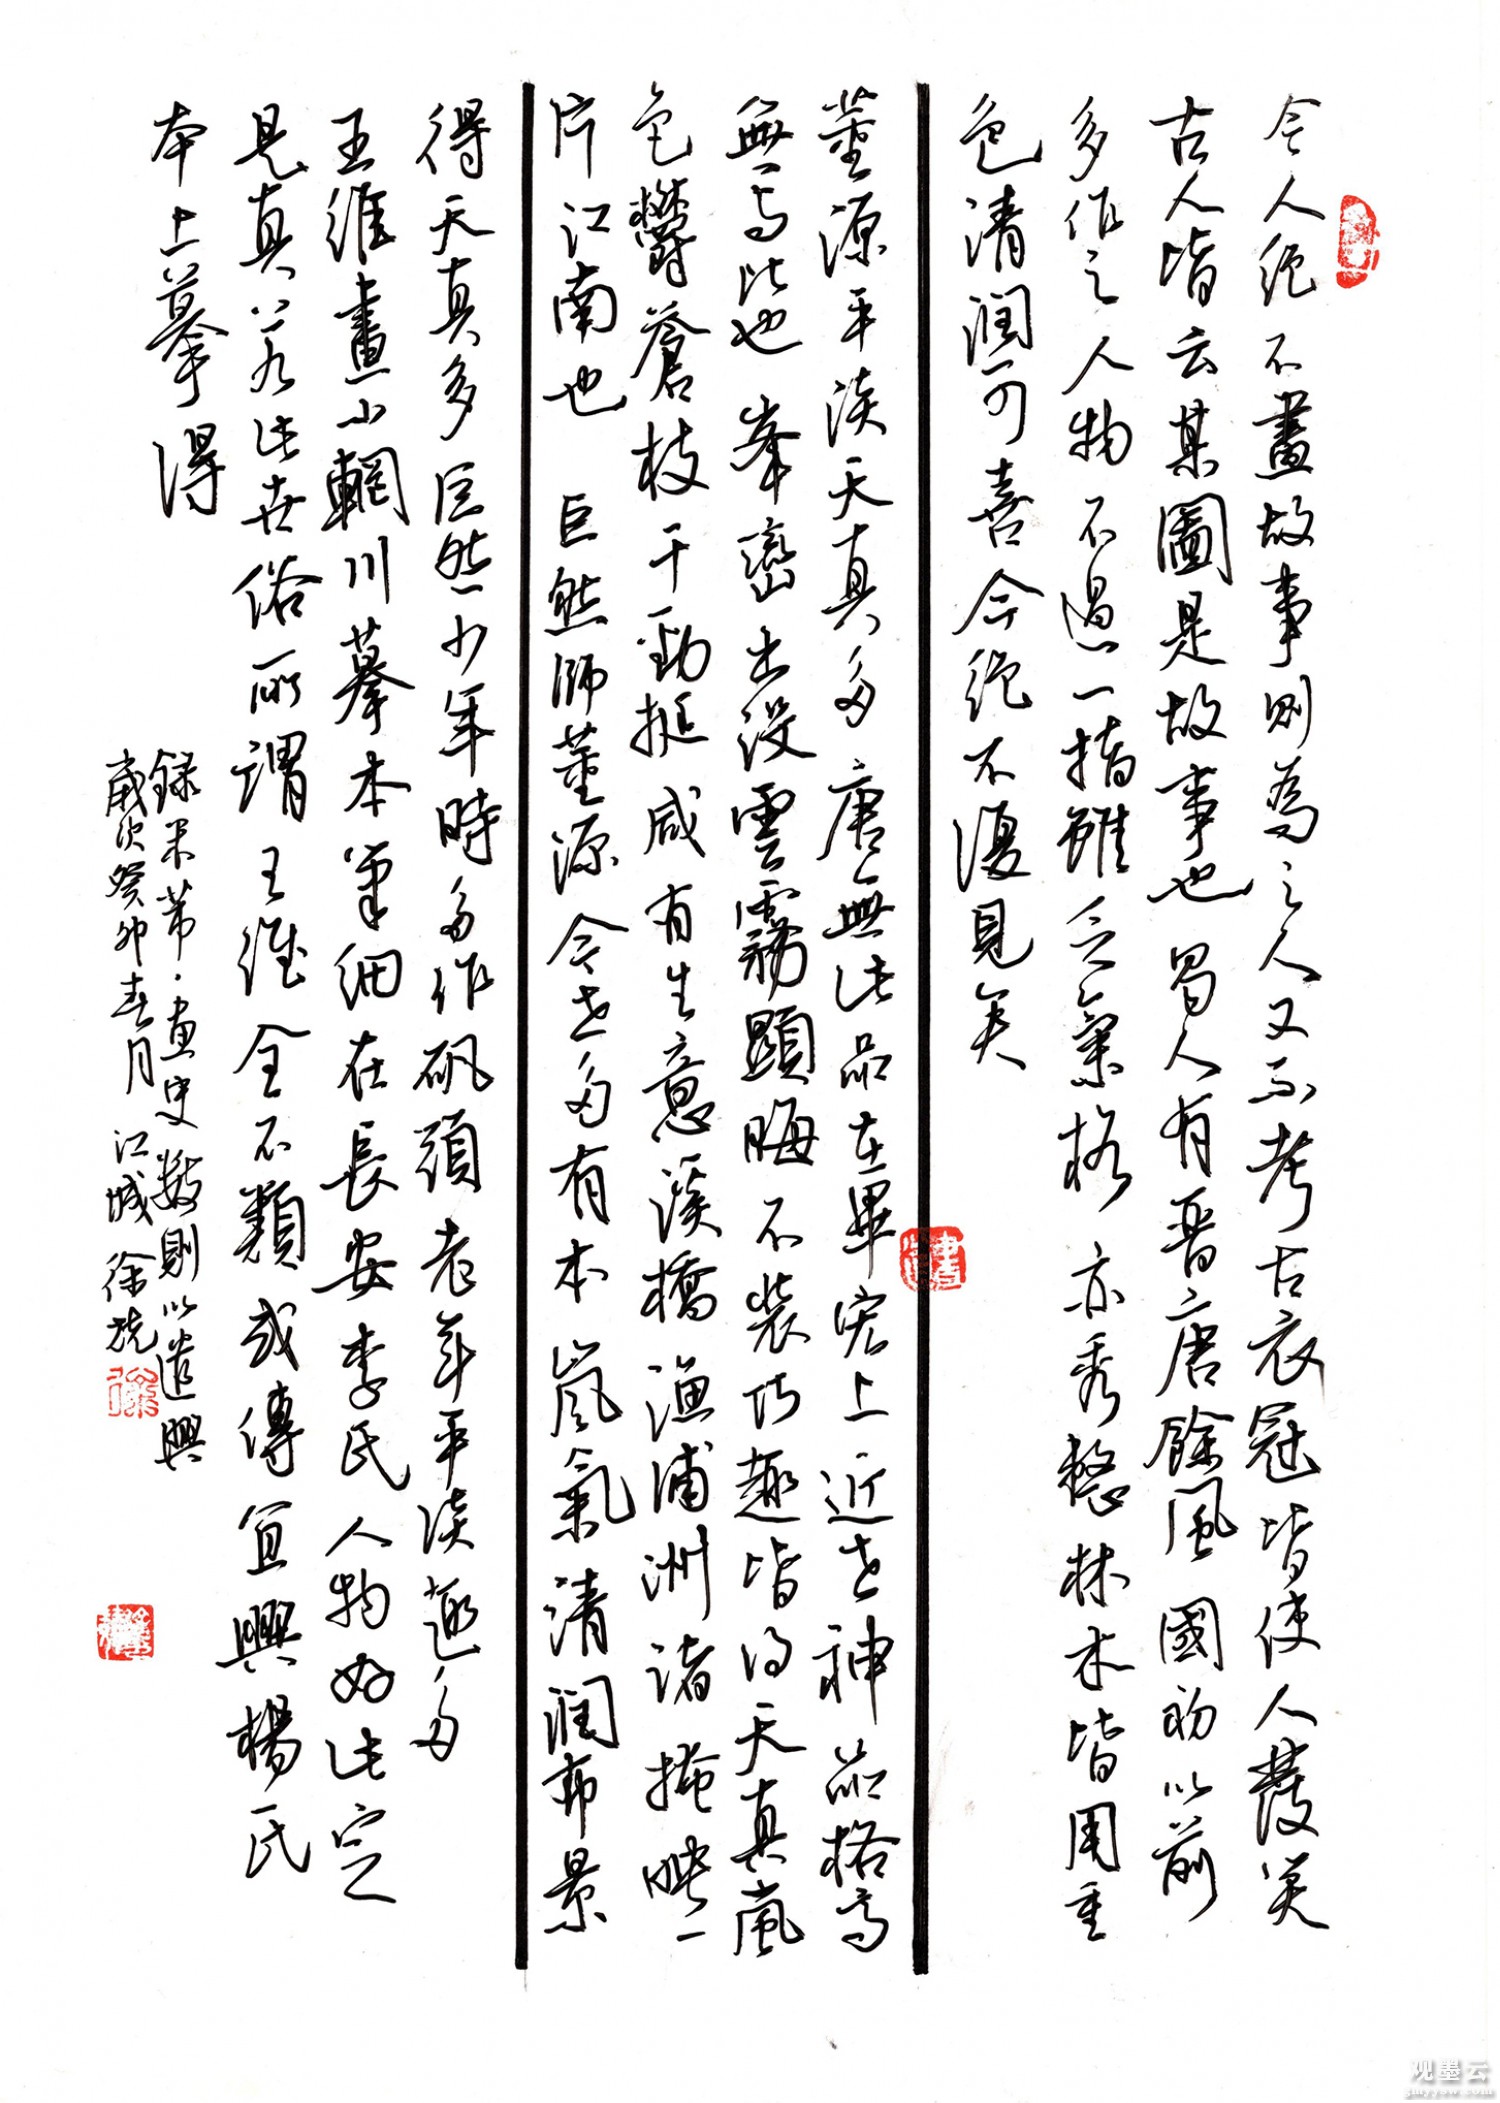 今人絶不畫故事則為之人又不考古衣冠皆使人發笑
古人皆云某圖是故事也蜀人有晉唐餘風國初以前
多作之人物不過一指雖乏氣格亦秀整林木皆用重
色清潤可喜今絶不復見矣
董源平淡天真多唐無此品在畢宏上近世神品格高
無與比也峯巒出没雲霧顯晦不裝巧趣皆得天真嵐
色鬱蒼枝干勁挺咸有生意溪橋漁浦洲渚掩映一
片江南也巨然師董源今世多有本嵐氣清潤布景
得天真多巨然少年時多作礬頭老年平淡趣多
王維畫小輞川摹本筆細在長安李氏人物好此定
是真若比世俗所謂王維全不類或傳宜興楊氏
本上摹得
録米芾·畫史數則以遣興
歲次癸卯春月江城徐
观墨云
gmyyow.com